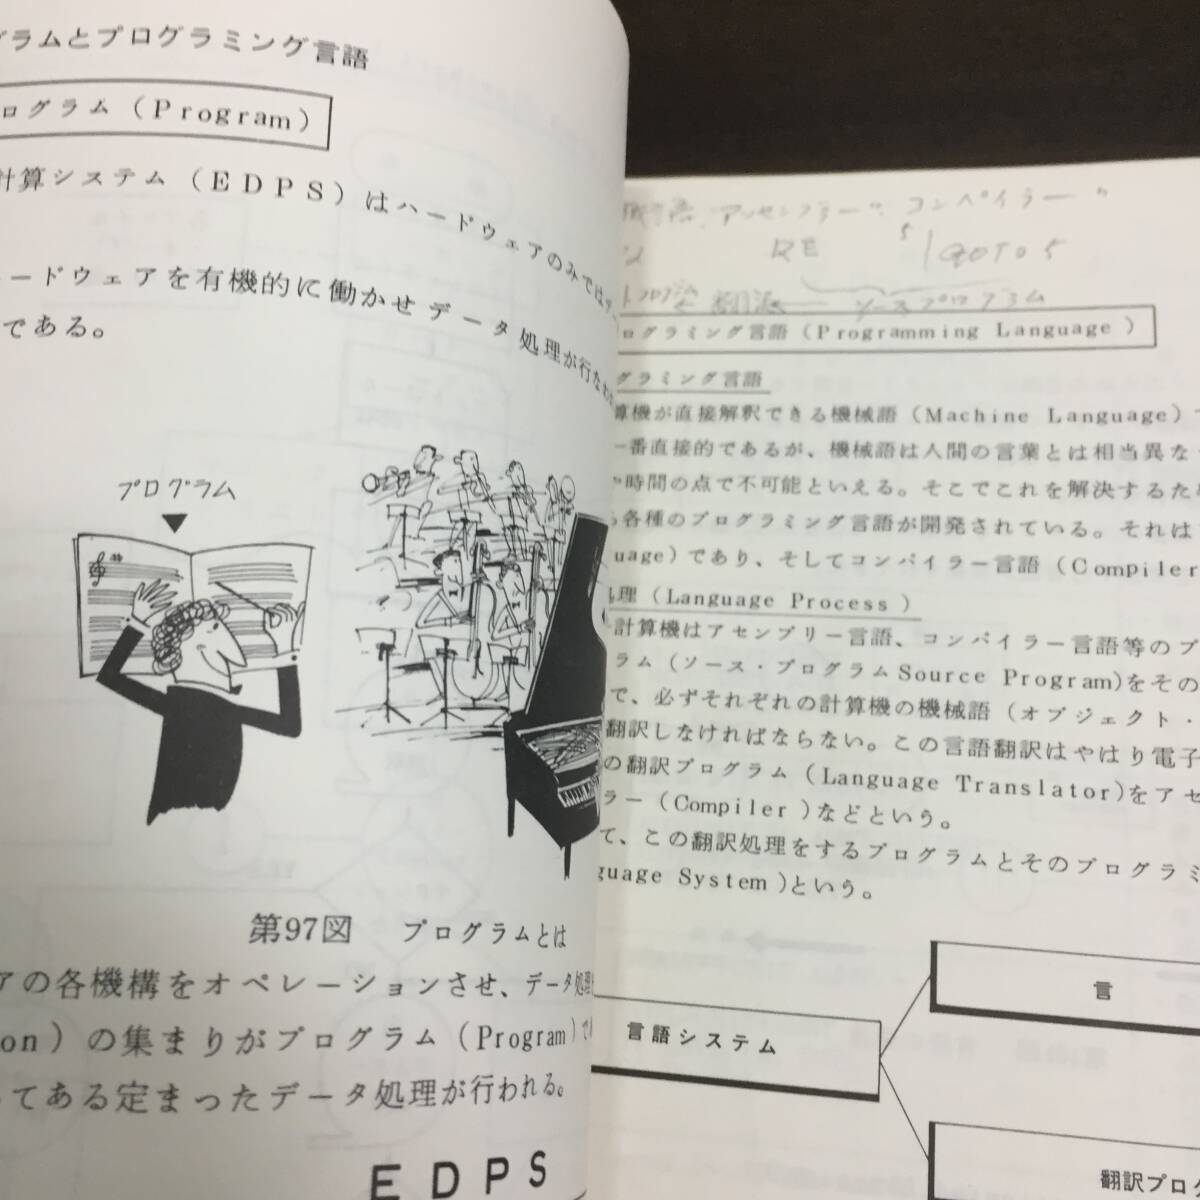 グラムとプログラミング言語
ログラム (Program)
計算システム (EDPS) はハードウェアのみでは
ードウェアを有機的に働かせデータ処理が行なわ
である。
プログラム
第97図 プログラムとは
アの各機構をオペレーションさせ、データ処理
on) の集まりがプログラム (Program)
てある定まったデータ処理が行われる。
EDPS
アッセンブラー コンパイラー
GOTO5
翻訳 ソースプログラム
ログラミング言語 (Programming Language)
グラミング言語
算機が直接解釈できる機械語 (Machine Language)
一番直接的であるが、機械語は人間の言葉とは相当異な
時間の点で不可能といえる。そこでこれを解決するた
各種のプログラミング言語が開発されている。それは
uage) であり、そしてコンパイラー言語 (Compiler
処理 (Language Process)
計算機はアセンブリー言語、コンパイラー言語等のプ
ラム (ソース・プログラムSource Program)をその
で、必ずそれぞれの計算機の機械語 (オブジェクト・
翻訳しなければならない。この言語翻訳はやはり電子
の翻訳プログラム (Language Translator)をアセ
ラー (Compiler)などという。
て、この翻訳処理をするプログラムとそのプログラミ
guage System)という。
言語システム
言
翻訳プロ